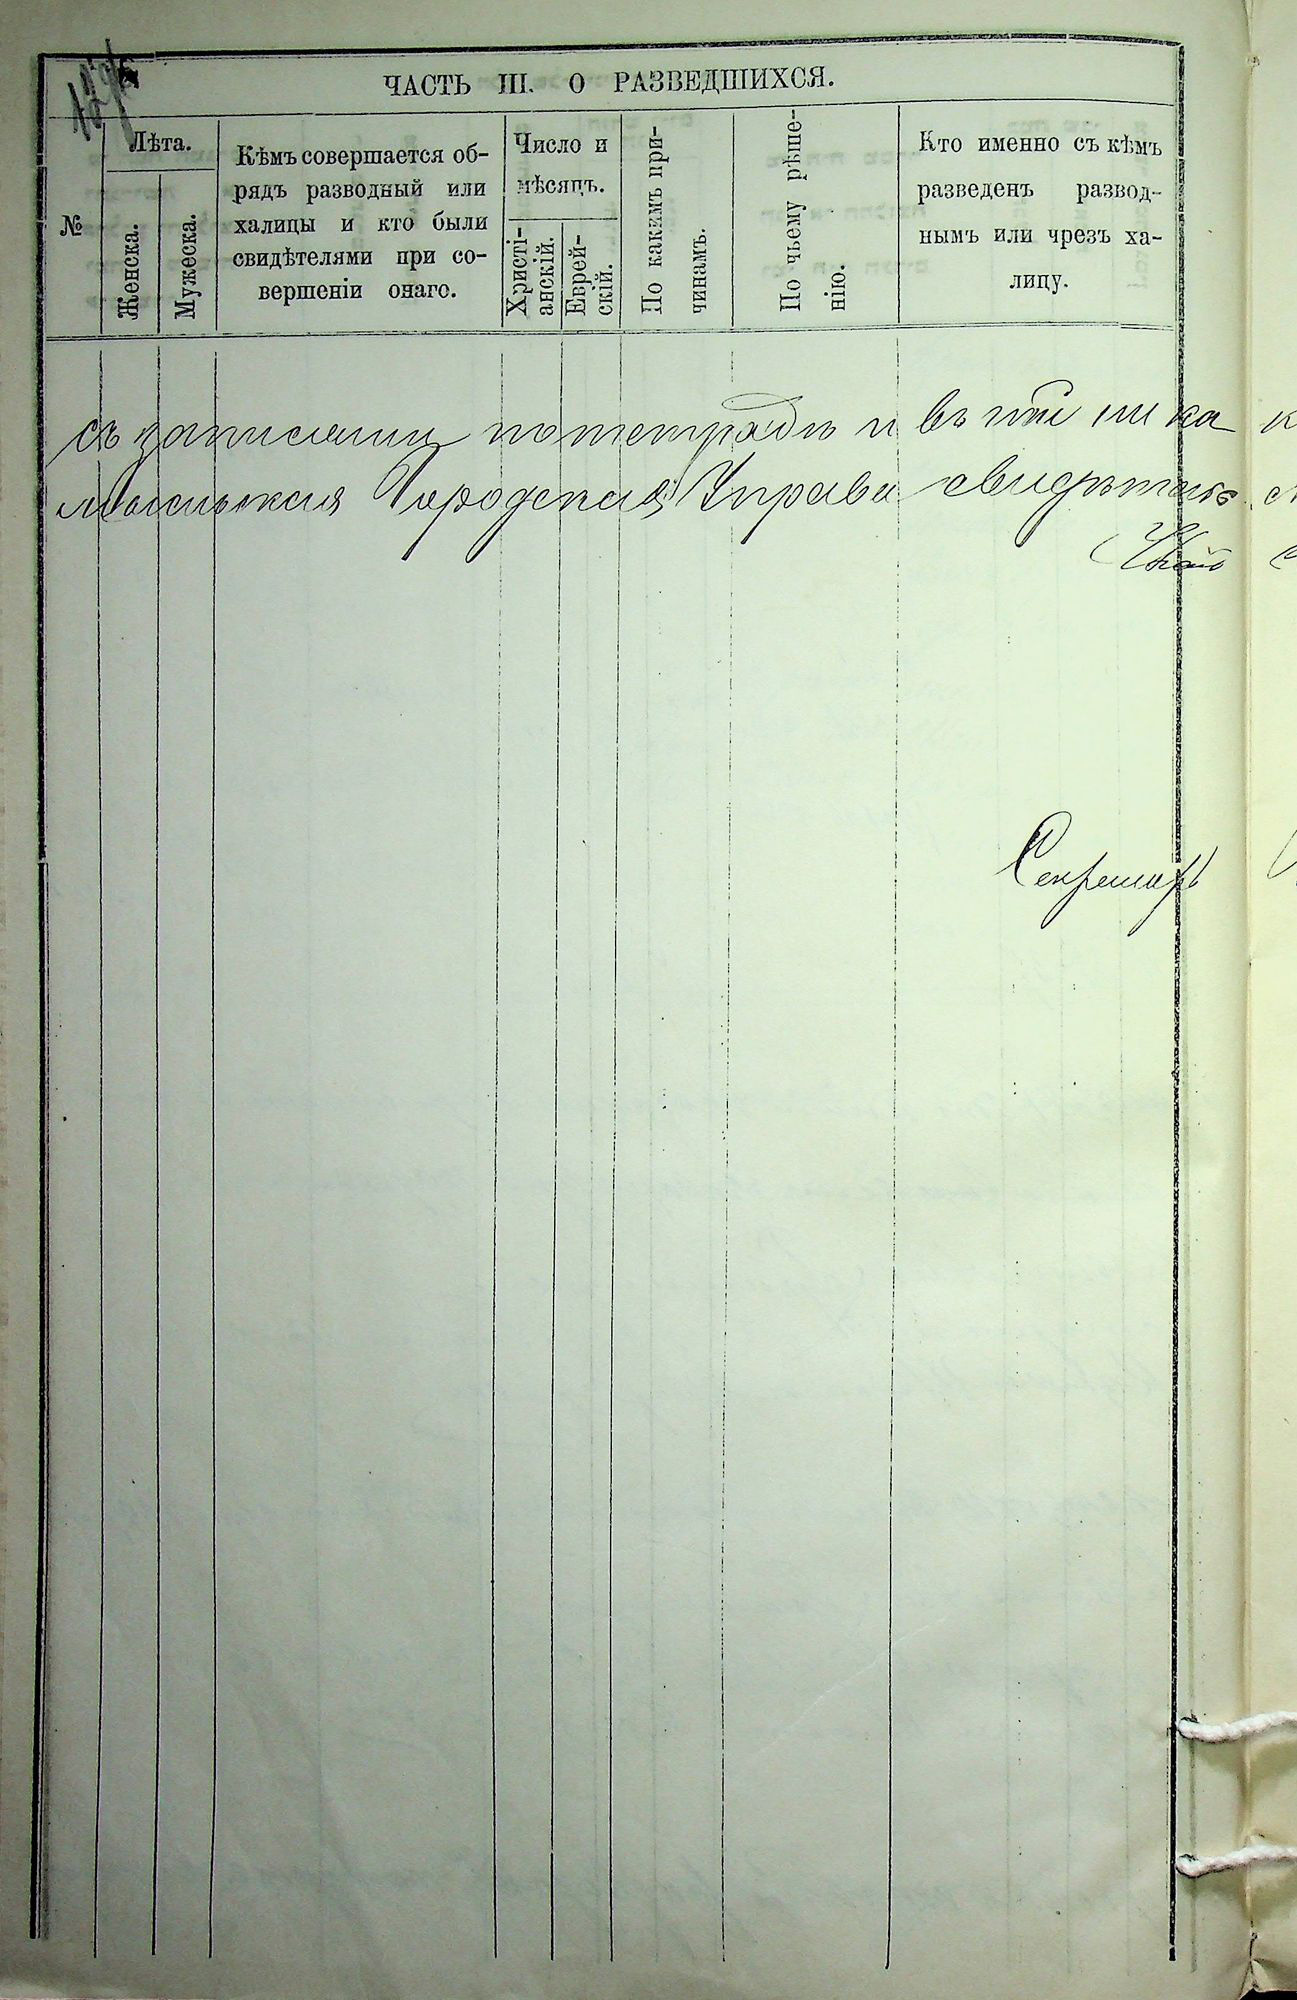 ЧАСТЬ III. О РАЗВЕДШИХСЯ.
№
Лѣта.
Женска.
Мужеска.
Кѣмъ совершается об-
рядъ разводный или
халицы и кто были
свидѣтелями при со-
вершеніи онаго.
Число и
мѣсяцъ.
Христі-
анскій.
Еврей-
скій.
По какимъ при-
чинамъ.
По чьему рѣше-
нію.
Кто именно съ кѣмъ
разведенъ развод-
нымъ или чрезъ ха-
лицу.
съ записями по тетради и въ
Городская Управа
Секретарь